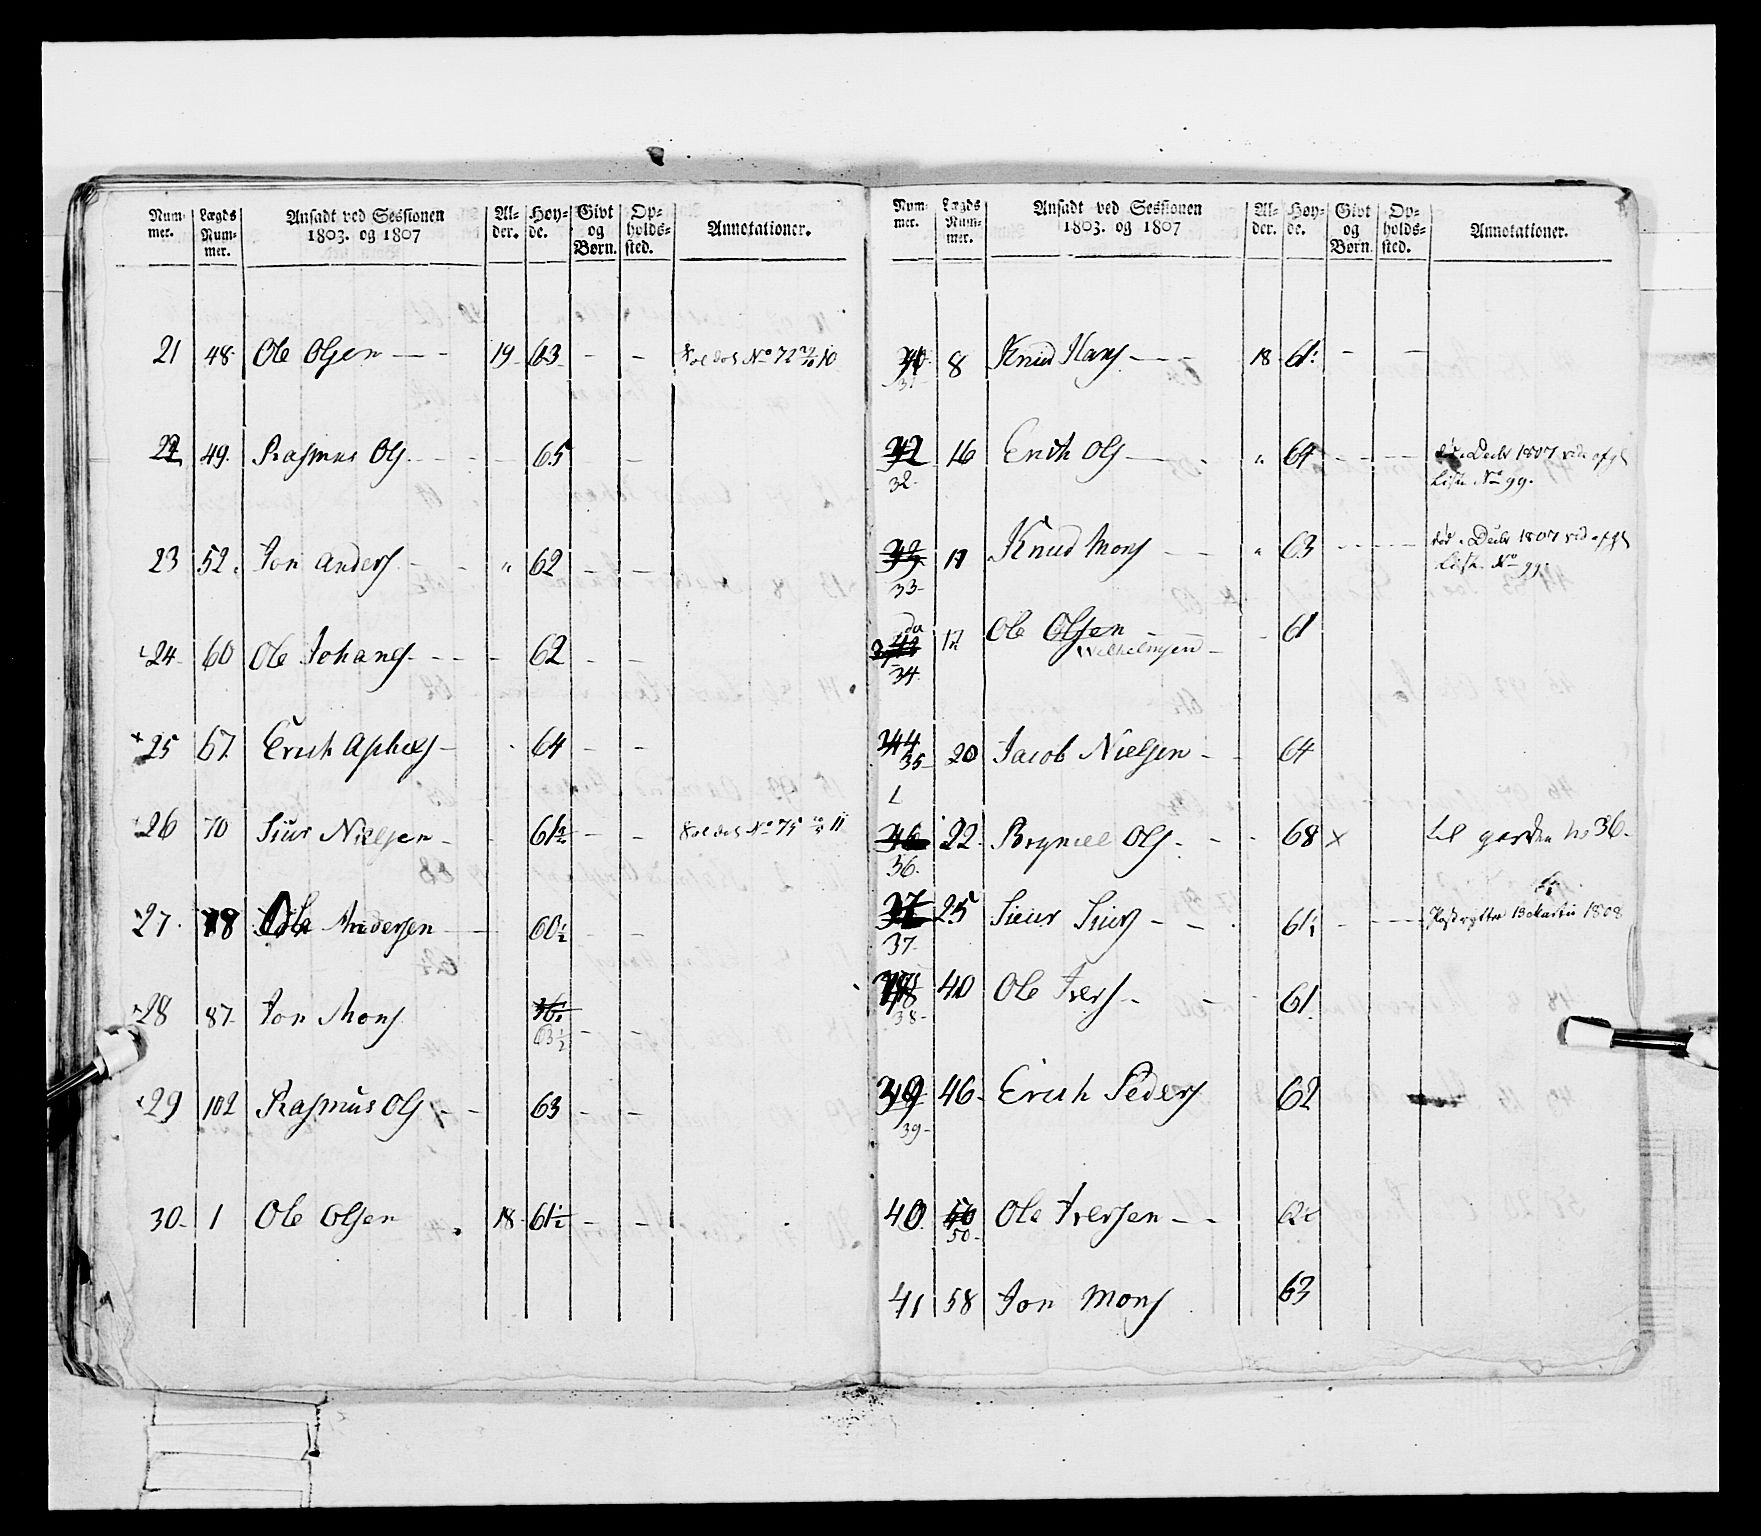 Num- Lægds Ansadt ved Sessionen Al- Høy- Givt Op-
mer. Num- 1803. og 1807 der. de. og holds- Annotationer.
mer. Børn. sted.
21 48 Ole Olsen 19 63 No 72
22 49. Rasmus Ols 65
23 52. Jon Anders " 62
24 60 Ole Johans 62
25 67. Erich Asphs 64
26 70 Siur Nielsen 61½ No 75
27. 78 Ole Andersen 60½
28 87. Jon Mons 63½
29 102 Rasmus Ols 63
30 1 Ole Olsen 18 61½
Num- Lægds Ansadt ved Sessionen Al- Høy- Givt Op-
mer. Num- 1803. og 1807 der. de. og holds- Annotationer.
mer. Børn. sted.
31 8 Knud Hans 18 61.
42 16 Erich Ols " 64 død Decbr 1807 vide
32. Liste No 99.
17 Knud Mons " 63 død Decbr 1807 vid
33 Liste No 99.
17 Ole Olsen 61
Wilhelmsen
34
44 20 Jacob Nielsen 64
35
22 Brynild Ols 68 x til garden No 36.
36.
37 25 Siur Siurs 61½ Martii 1808
37
40 Ole Ivers 61.
38
49 46 Erich Peders 62
39
40 50 Ole Iversen 62
50
41 58 Jon Mons 63